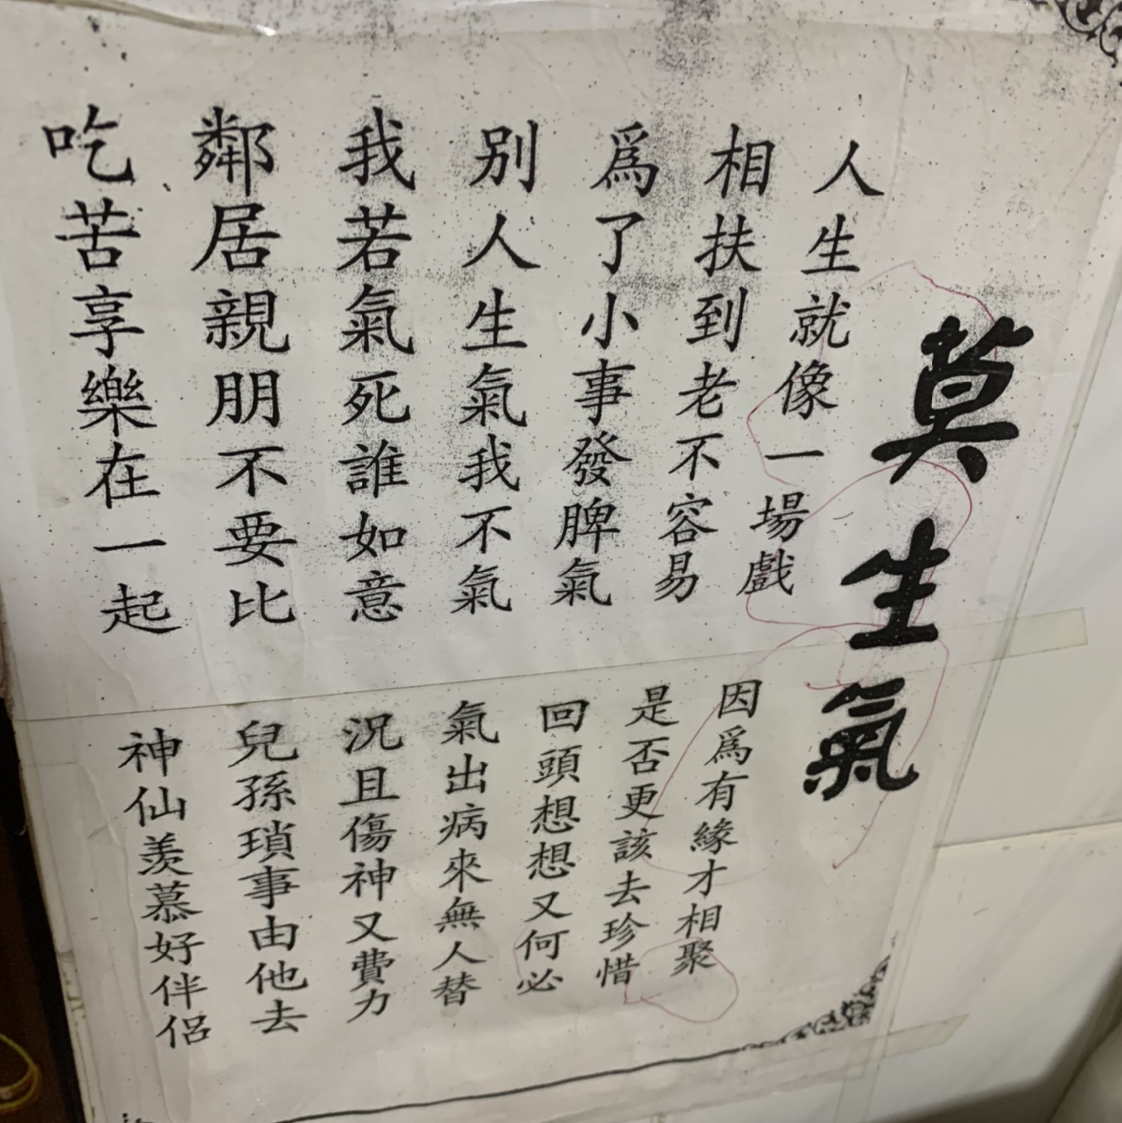 莫生氣
人生就像一場戲
因爲有緣才相聚
相扶到老不容易
是否更該去珍惜
爲了小事發脾氣
回頭想想又何必
别人生氣我不氣
氣出病來無人替
我若氣死誰如意
況且傷神又費力
鄰居親朋不要比
兒孫瑣事由他去
吃苦享樂在一起
神仙羨慕好伴侶